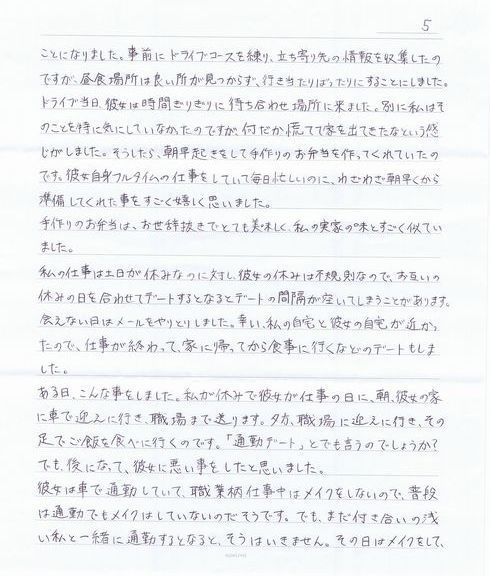 5
ことになりました。事前にドライブコースを練り、立ち寄り先の情報を収集したの
ですが、昼食場所は良い所が見つからず、行き当たりばったりにすることにしました。
ドライブ当日、彼女は時間ぎりぎりに待ち合わせ場所に来ました。別に私はそ
のことを特に気にしていなかったのですが、何だか慌てて家を出てきたなという感
じがしました。そうしたら、朝早起きをして手作りのお弁当を作ってくれていたの
です。彼女自身フルタイムの仕事をしていて毎日忙しいのに、わざわざ朝早くから
準備してくれた事をすごく嬉しく思いました。
手作りのお弁当は、お世辞抜きでとても美味しく、私の実家の味とすごく似てい
ました。
私の仕事は土日が休みなのに対し、彼女の休みは不規則なので、お互いの
休みの日を合わせてデートするとなるとデートの間隔が空いてしまうことがあります。
会えない日はメールをやりとりしました。幸い、私の自宅と彼女の自宅が近かっ
たので、仕事が終わって、家に帰ってから食事に行くなどのデートもしま
した。
ある日、こんな事をしました。私が休みで彼女が仕事の日に、朝、彼女の家
に車で迎えに行き、職場まで送ります。夕方、職場に迎えに行き、その
足でご飯を食べに行くのです。「通勤デート」とでも言うのでしょうか?
でも、後になって、彼女に悪い事をしたと思いました。
彼女は車で通勤していて、職業柄仕事中はメイクをしないので、普段
は通勤でもメイクはしていないのだそうです。でも、まだ付き合いの浅
い私と一緒に通勤するとなると、そうはいきません。その日はメイクをして、